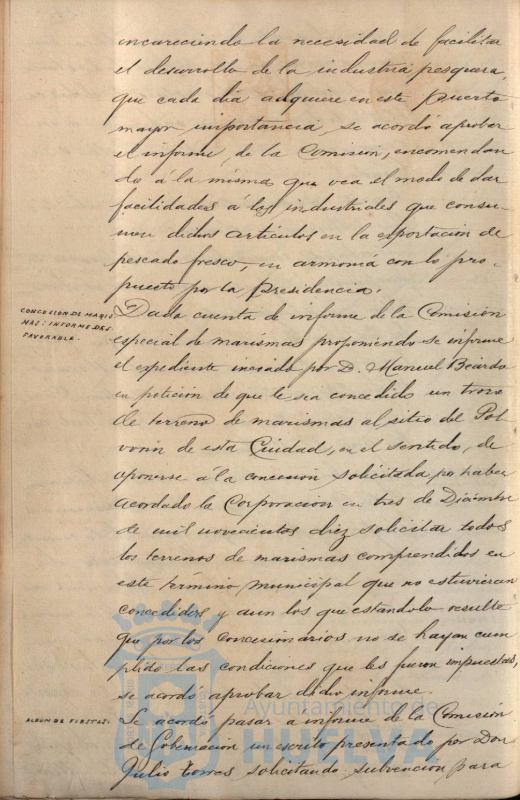 incareciendo la necesidad de facilitar
el desarrollo de la industria pesquera,
que cada dia adquiere en este puerto
mayor importancia, se acordó aprobar
el informe, de la Comision, encomendan
do á la misma que vea el modo de dar
facilidades á los industriales que consu-
men dichos articulos en la exportacion de
pescado fresco, en armonia con lo pro-
puesto por la Presidencia.
CONCESION DE MARIS-
MAS: INFORME DES-
FAVORABLE.
Dada cuenta de informe de la Comision
especial de marismas proponiendo se informe
el expediente incoado por D. Manuel
en peticion de que le sea concedido un trozo
de terreno de marismas al sitio del Pol
vorin de esta Ciudad, en el sentido, de
oponerse á la concesion solicitada, por haber
acordado la Corporacion en tres de Diciembre
de mil novecientos diez solicitar todos
los terrenos de marismas comprendidos en
este termino municipal que no estuvieran
concedidos y aun los que estandolo resulte
que por los concesionarios no se hayan cum
plido las condiciones que les fueron impuestas,
se acordó aprobar dicho informe.
ALBUM DE FIESTAS.
Se acordó pasar a informe de la Comision
de Gobernacion un escrito presentado por Don
Julio Torres solicitando subvencion para
Ayuntamiento de
HUELVA